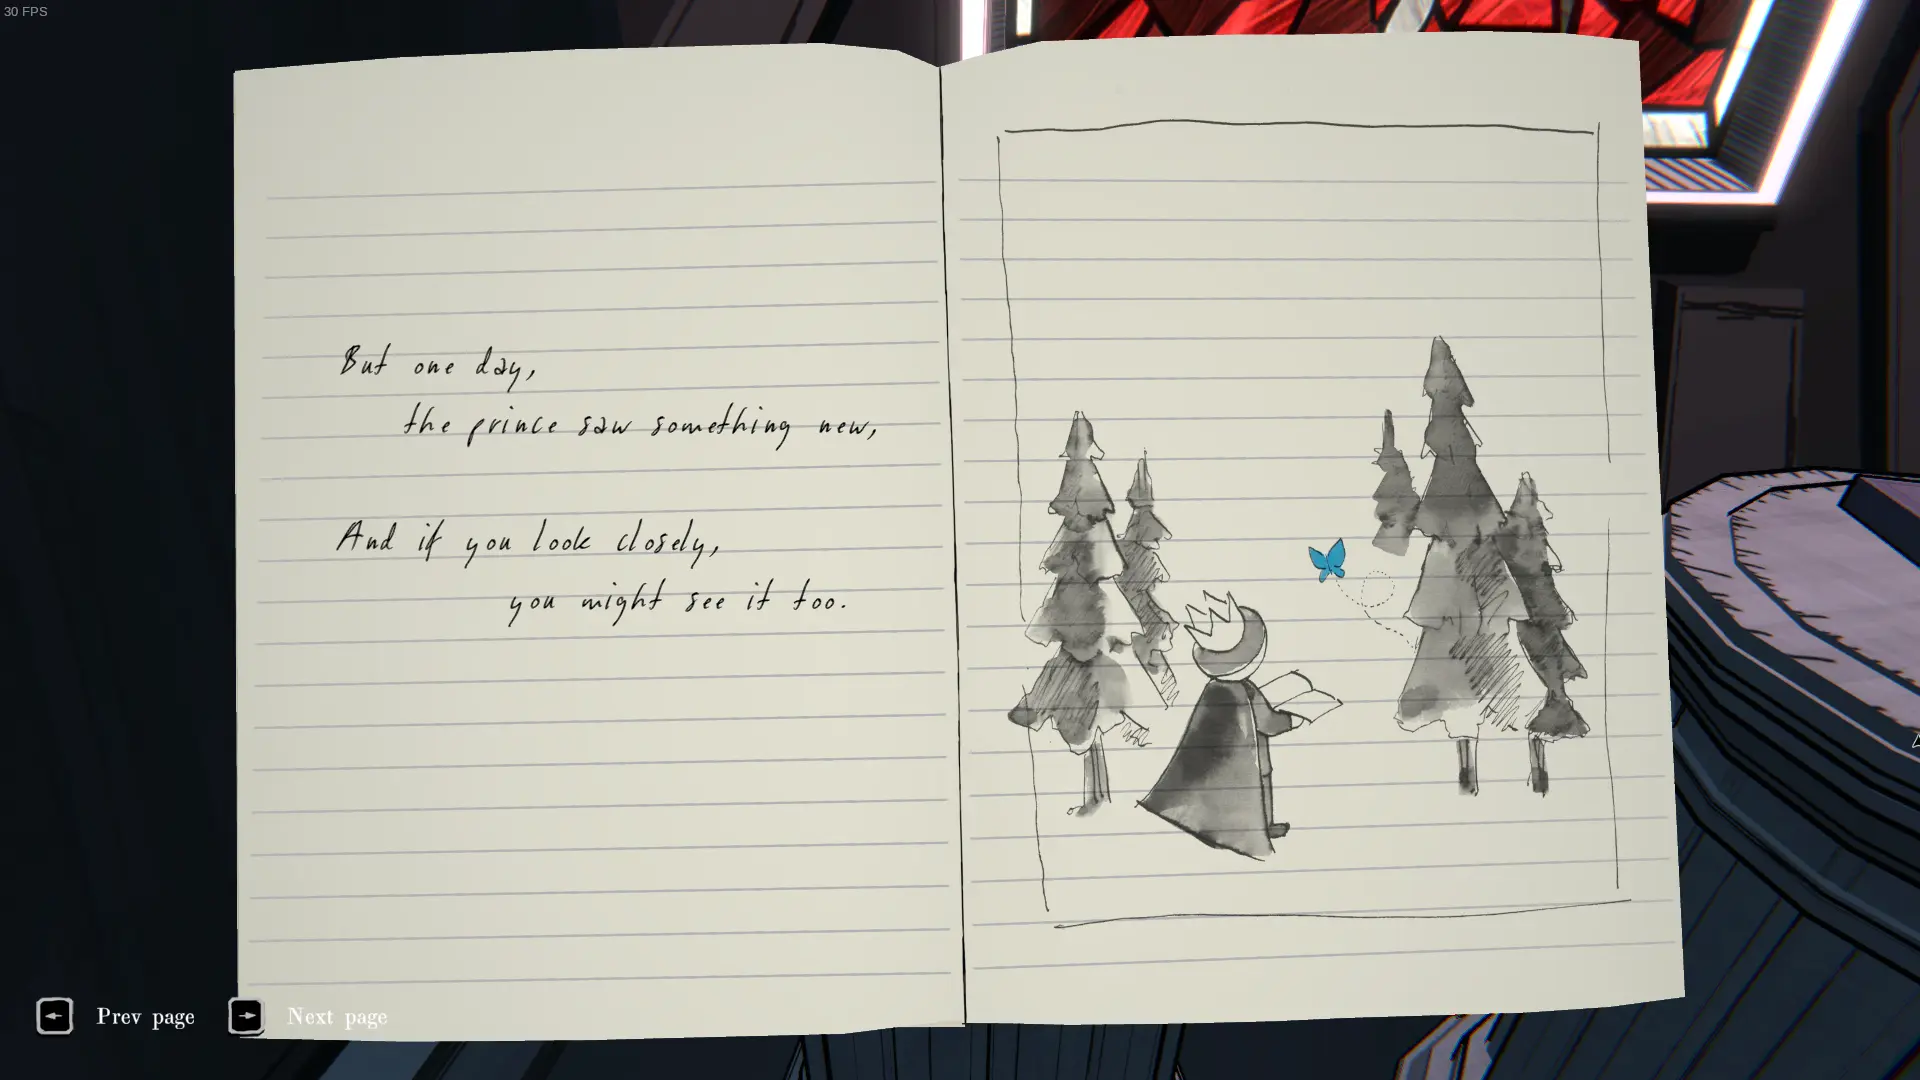 30 FPS
But one day,
the prince saw something new,
And if you look closely,
you might see it too.
Prev page
Next page